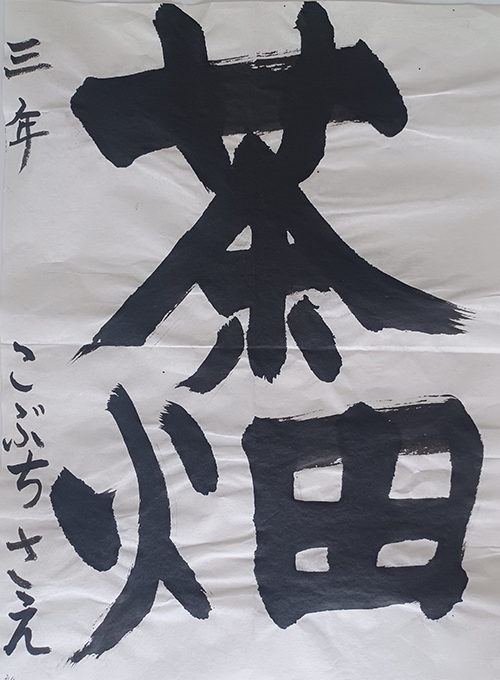 茶畑
三年 こぶちさえ